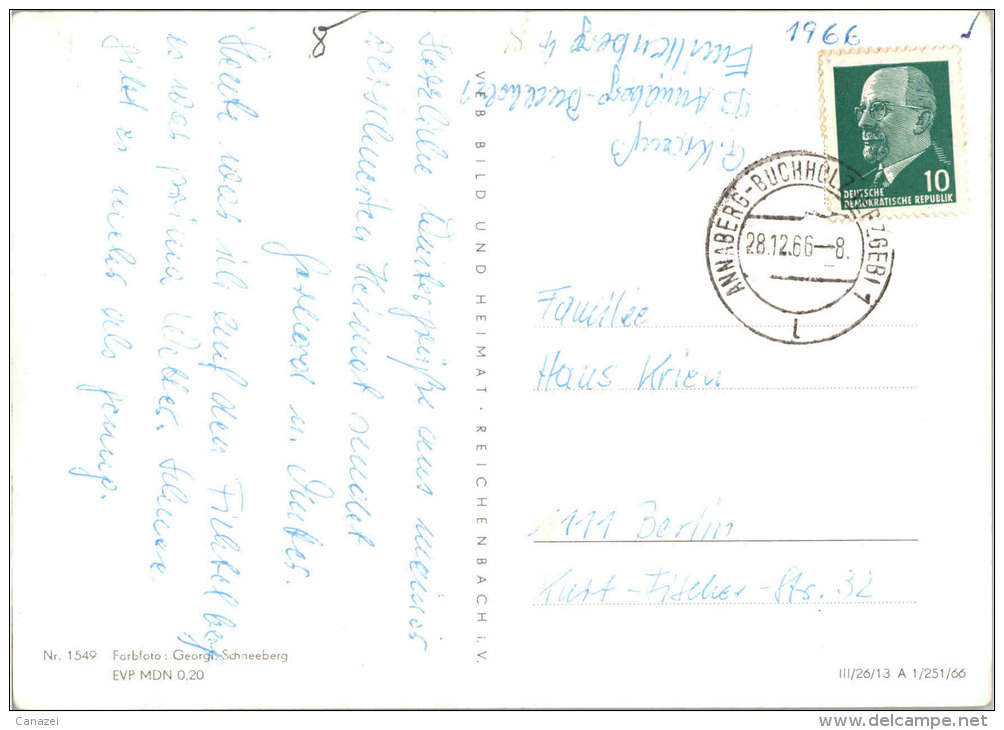 1966
8
G. Krauß
93 Annaberg-Buchholz 1
4
DEUTSCHE
DEMOKRATISCHE REPUBLIK
10
ANNABERG-BUCHHOLZ (ERZGEB) 1
28.12.66-8.
l
Herzliche Wintergrüße aus meiner
verschneiten Heimat sendet
Gerhard u.
Heute war ich auf dem Fichtelberg
es war prima Wetter. Schnee
gibt es mehr als genug.
VEB BILD UND HEIMAT · REICHENBACH i. V.
Familie
Hans Krien
111 Berlin
Kurt-Fischer-Str. 32
Nr. 1549 Farbfoto: Georgi, Schneeberg
EVP MDN 0,20
III/26/13 A 1/251/66
Canazei
delcampe.net